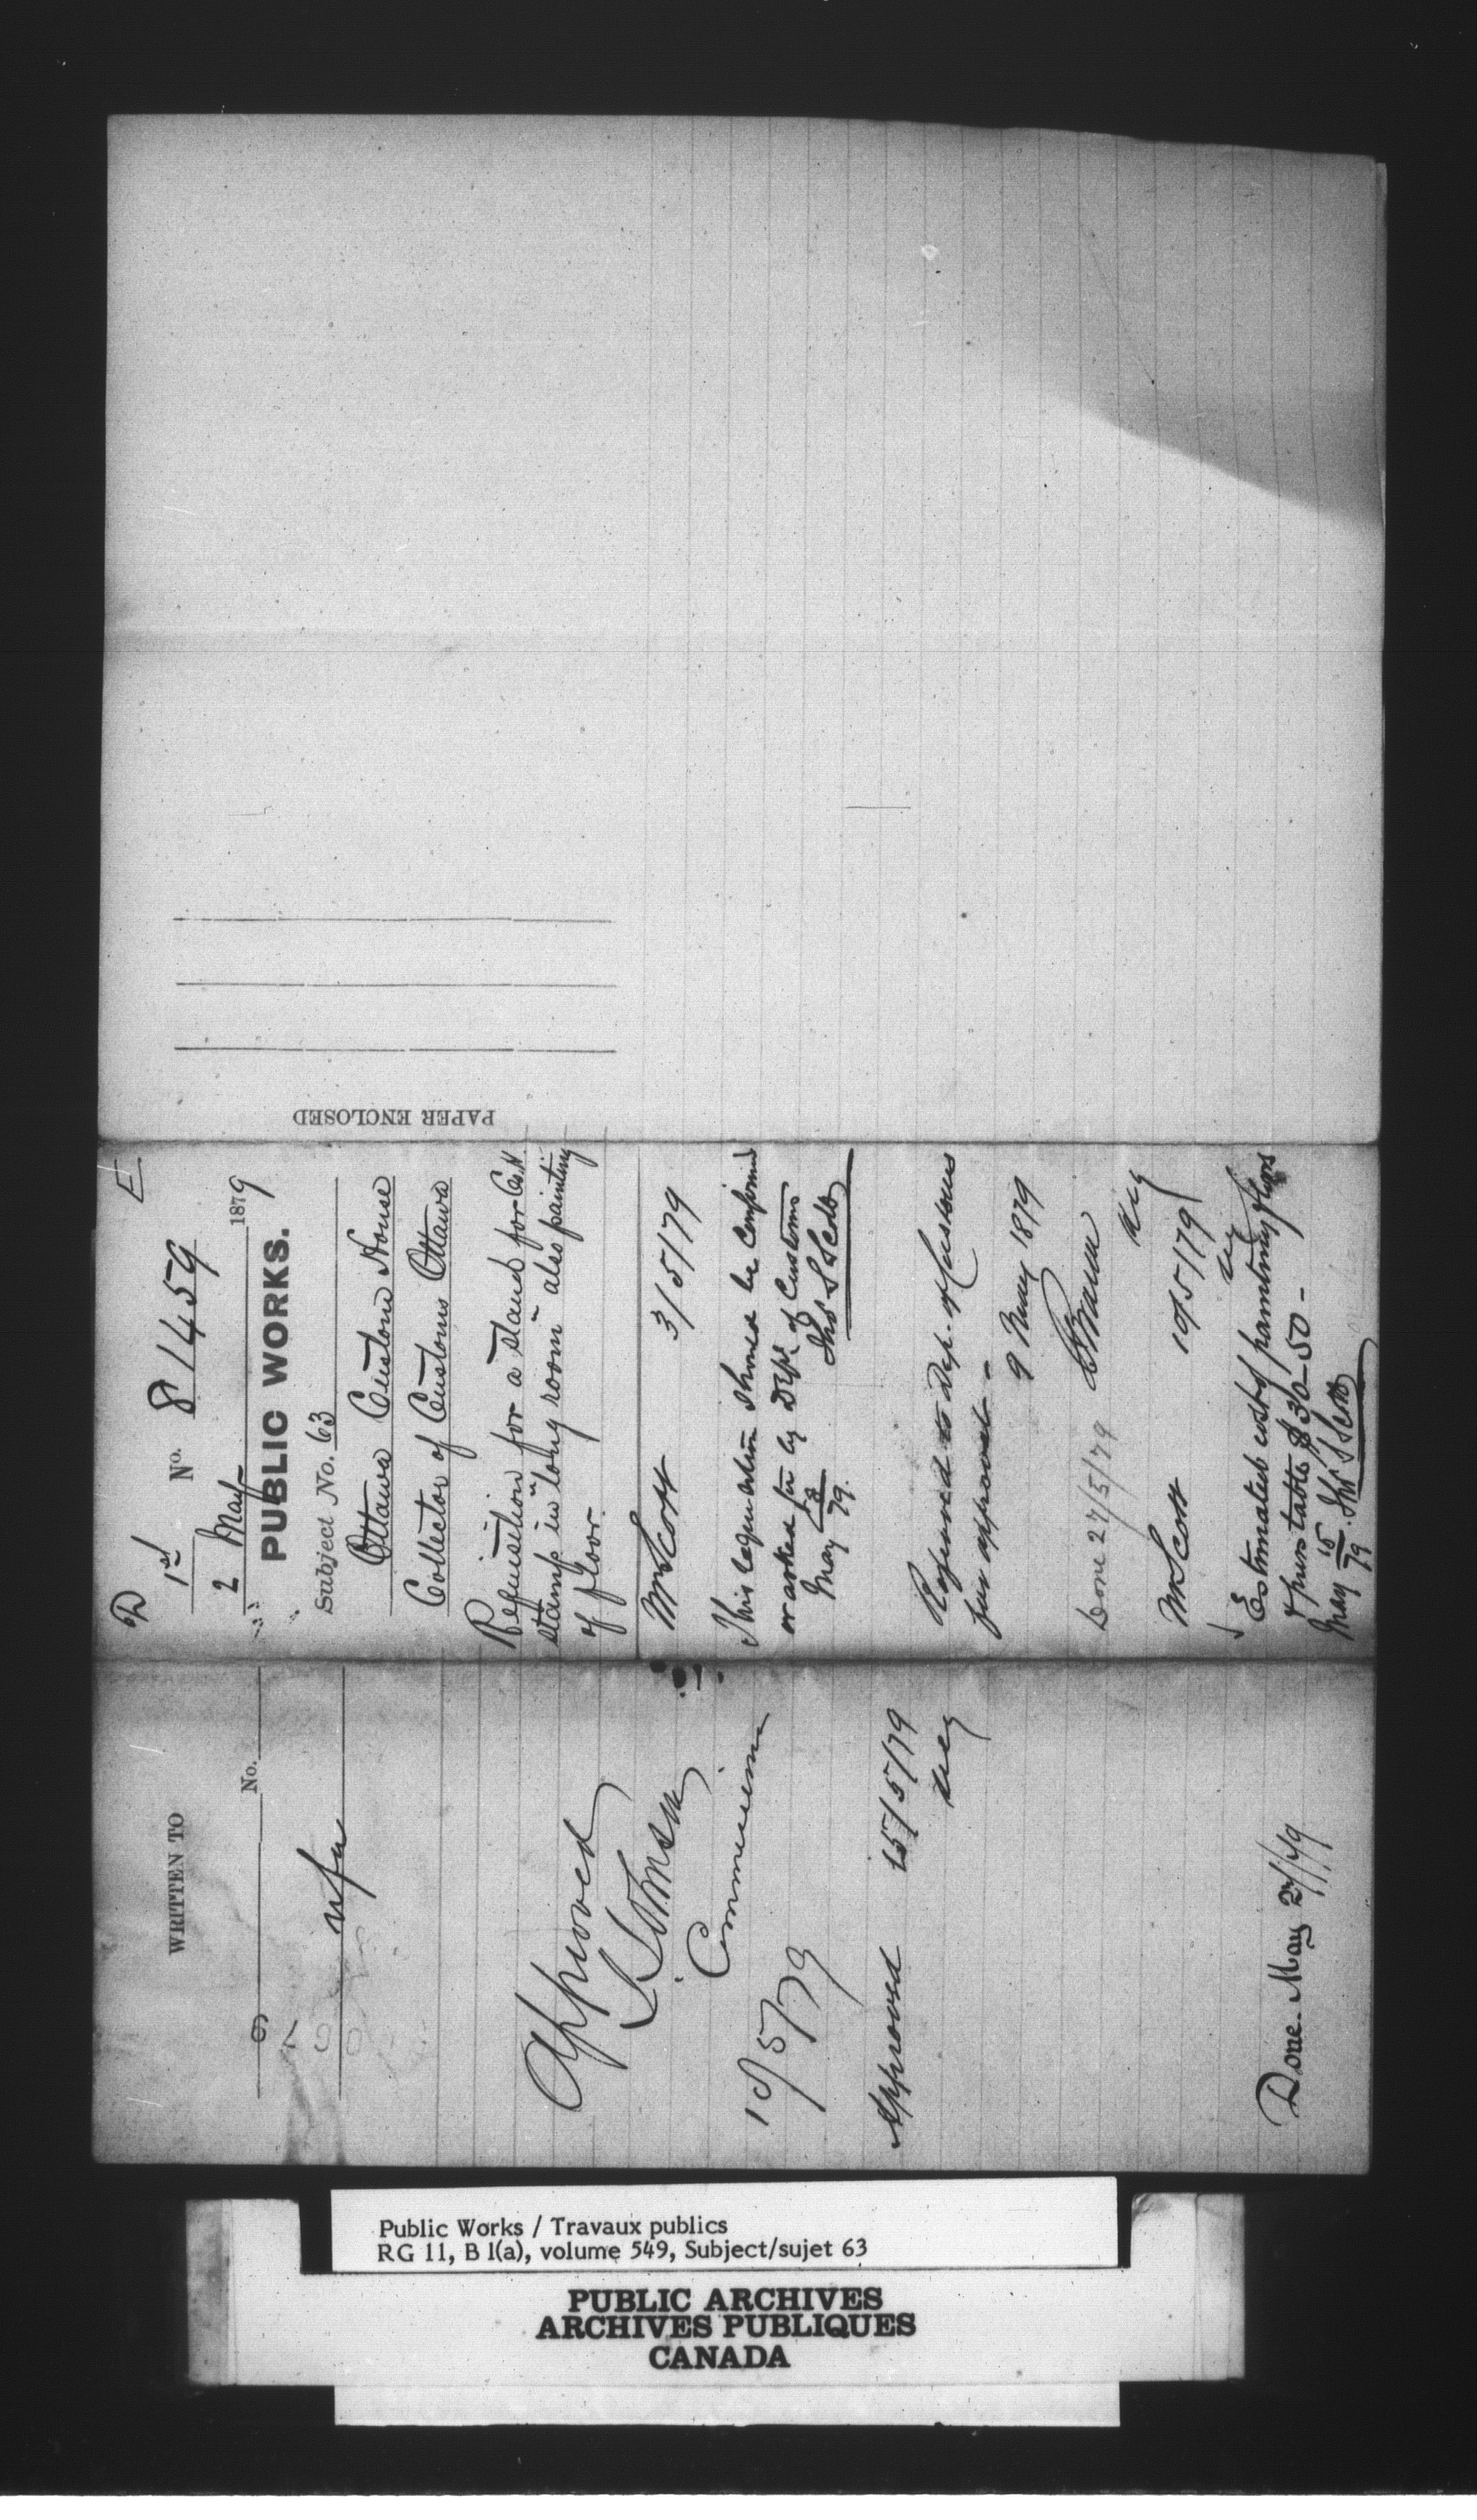 D E
1st No. 81459
2 May 1879
PUBLIC WORKS.
Subject No. 63
Ottawa Custom House
Collector of Customs Ottawa
Requisition for a stand for Co.H
stamp in "long room" also painting
of floor.
Mr Scott 3/5/79
This requisition should be confirmed
or asked for by Dept of Customs
May 79. Thos S Scott
Referred to Dep. of Customs
for approval -
9 May 1879
Braun
Done 27/5/79
Mr Scott 10/5/79
Estimated cost of painting floors
& pine table $30-50-
May 15/79. Thos S Scott
PAPER ENCLOSED
WRITTEN TO
No.
nfa
Approved
J Johnson
Commissioner
10/5/79
Approved 15/5/79
Done May 27/79
Public Works / Travaux publics
RG 11, B 1(a), volume 549, Subject/sujet 63
PUBLIC ARCHIVES
ARCHIVES PUBLIQUES
CANADA